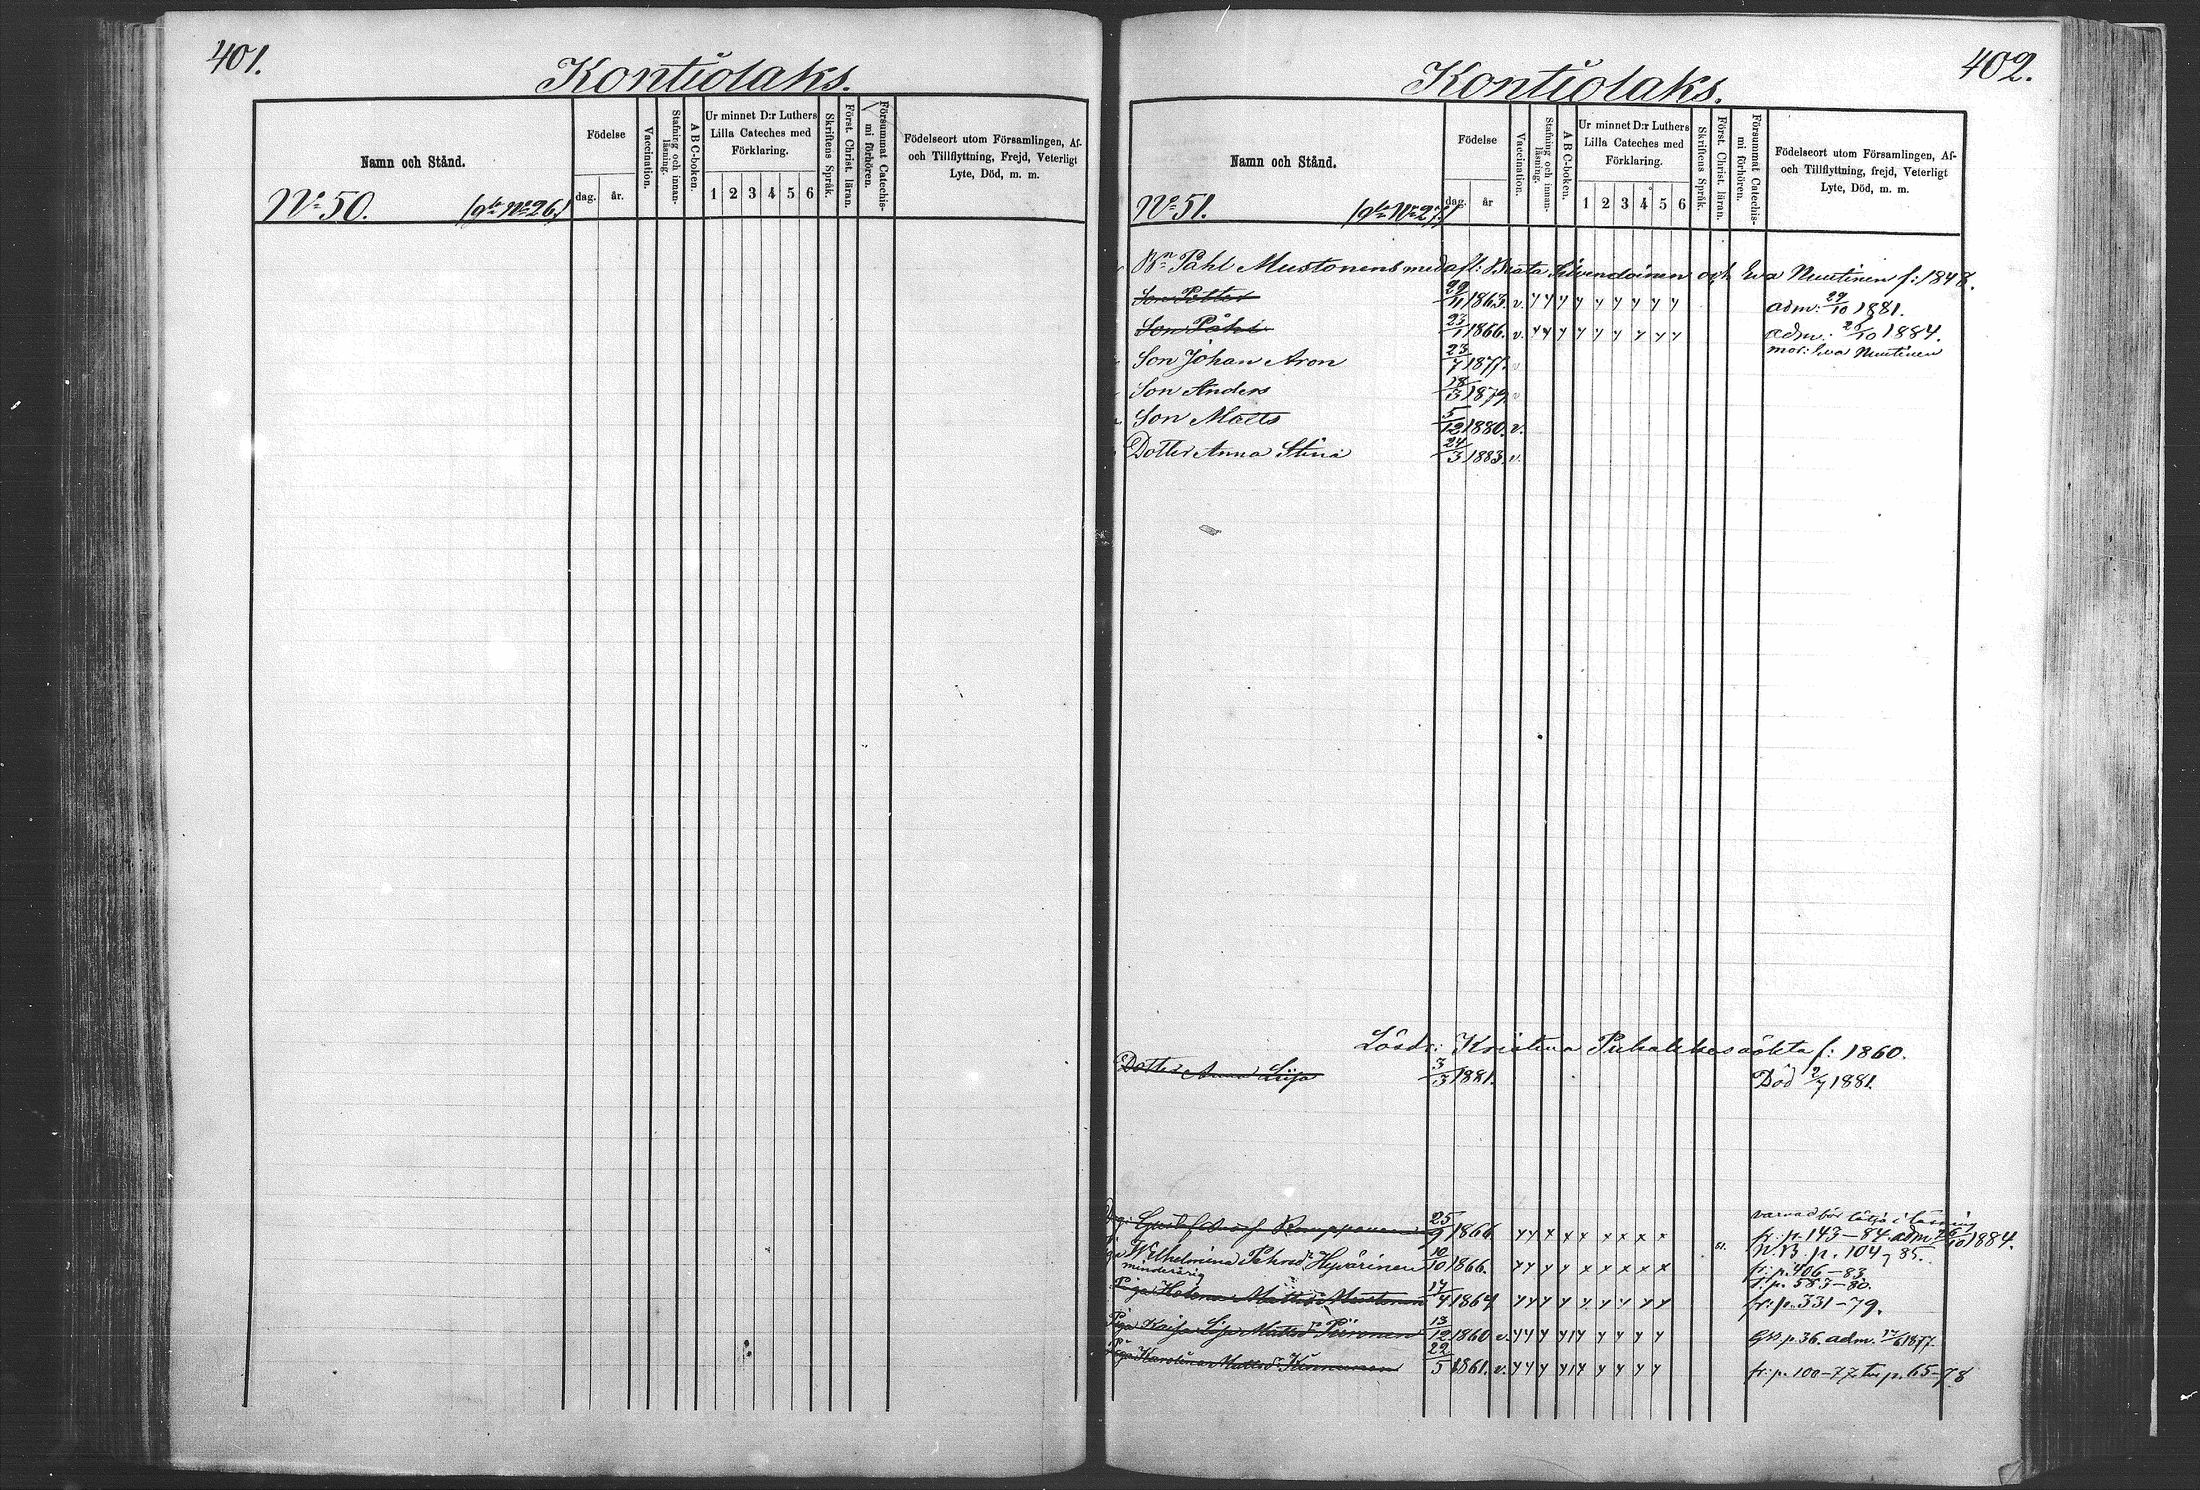 401.
Kontiolaks.
Namn och Stånd.
Födelse
dag.
år.
Vaccination.
Stafning och innan-
läsning.
A B C-boken.
Ur minnet D:r Luthers
Lilla Cateches med
Förklaring.
1 2 3 4 5 6
Skriftens Språk.
Först. Christ. läran.
Försummat Catechis-
mi förhören.
Födelseort utom Församlingen, Af-
och Tillflyttning, Frejd, Veterligt
Lyte, Död, m. m.
No 50. (gla No 26)
402.
Kontiolaks.
Namn och Stånd.
Födelse
dag.
år
Vaccination.
Stafning och innan-
läsning.
A B C-boken.
Ur minnet D:r Luthers
Lilla Cateches med
Förklaring.
1 2 3 4 5 6
Skriftens Språk.
Först. Christ. läran.
Försummat Catechis-
mi förhören.
Födelseort utom Församlingen, Af-
och Tillflyttning, frejd, Veterligt
Lyte, Död, m. m.
No 51. (gla No 27)
Bn Påhl Mustonens med afl: Beata Sivendoinen och Eva Nuutinen f: 1848.
Son Petter 29/11 1863. v. adm: 29/10 1881.
Son Påhl 23/1 1866. v. adm: /10 1884.
mor: Eva Nuutinen
Son Johan Aron 23/7 1877. v
Son Anders 18/3 1879 v
Son Matts 5/12 1880. v.
Dotter Anna Stina 24/3 1883. v.
Lösdr: Kristina Puhakkas oäkta f: 1860.
Dotter Anna Liisa 3/3 1881. Död 2/7 1881.
varnad för i läsning
Gustaf Ramppanen 25/9 1866 fr: p. 143–84 adm /10 1884.
N.B. p. 104–85.
Wilhelmina Påhlsd:r Hyvärinen 10/10 1866. fr: p. 406–83
minderårig p. 583–80.
Piga Helena Mattsd:r Mustonen 17/4 1864 fr: p. 331–79.
Piga Kaisa Lisa Mattsd:r Piironen 13/12 1860 v. Gb. p. 36. adm. /6 1877.
Piga Karolina Mattsd:r Kinnunen 22/5 1861. v. fr: p. 100–77 p. 65–78